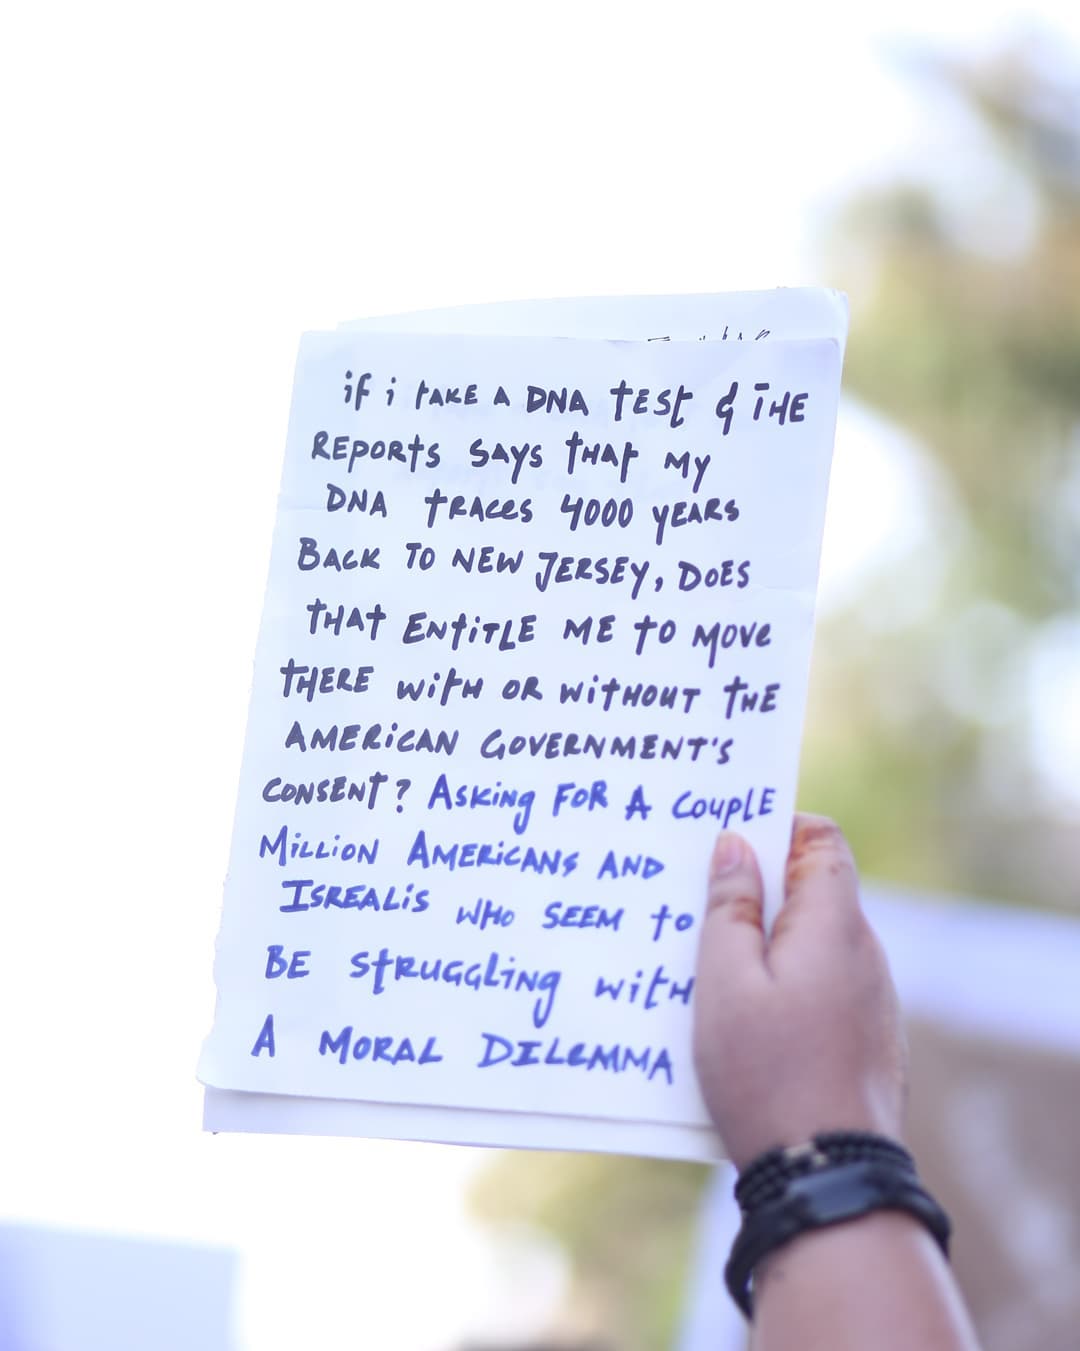 if i take A DNA test & THE
REPORTS SAYS tHAt MY
DNA tRACES 4000 YEARS
BACK TO NEW JERSEY, DOES
tHAt ENtiTLE ME to MOVE
tHERE witH OR witHOUT tHE
AMERiCAN GOVERNMENT'S
CONSENT? ASKing FOR A COUPLE
MiLLiON AMERiCANS AND
ISREALiS WHO SEEM to
BE StRUGGLiNg witH
A MORAL DILEMMA